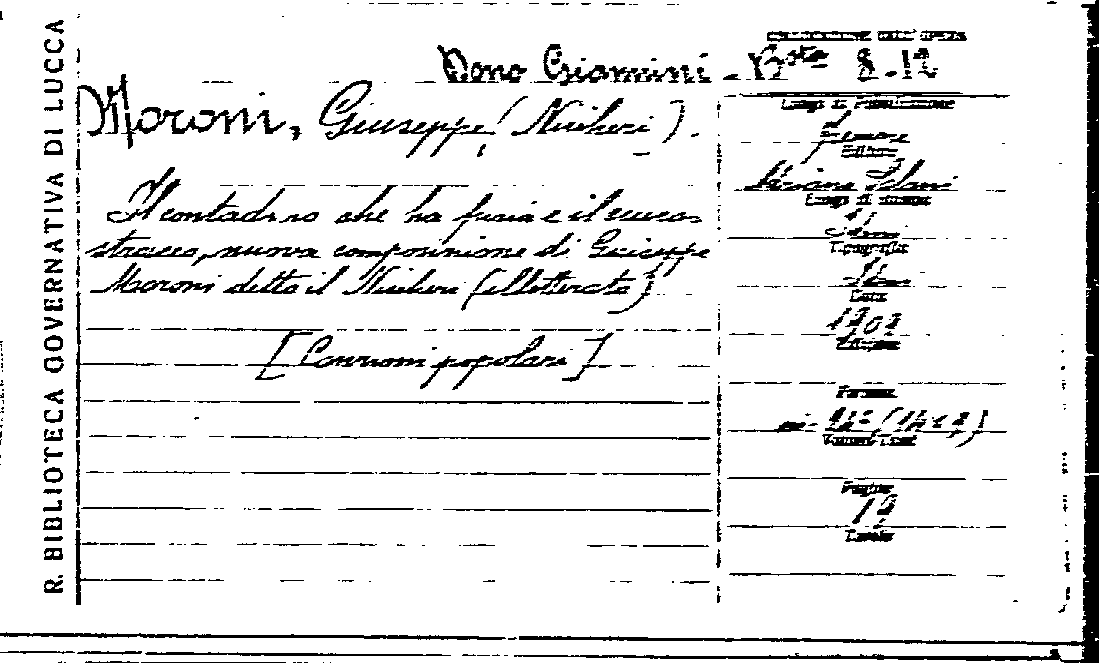 R. BIBLIOTECA GOVERNATIVA DI LUCCA
Dono Giannini - Bsta 8.12
Moroni, Giuseppe (Niccheri).
Il contadino che ha furia e il
stracco, nuova composizione di Giuseppe
Moroni detto il Niccheri (illetterato)
[Canzoni popolari]
Luogo di Pubblicazione
Firenze
Editore
Adriano Salani
Luogo di stampa
Idem
Tipografia
Idem
Data
Edizione
Formato
Volumi-Tomi
Pagine
Tavole